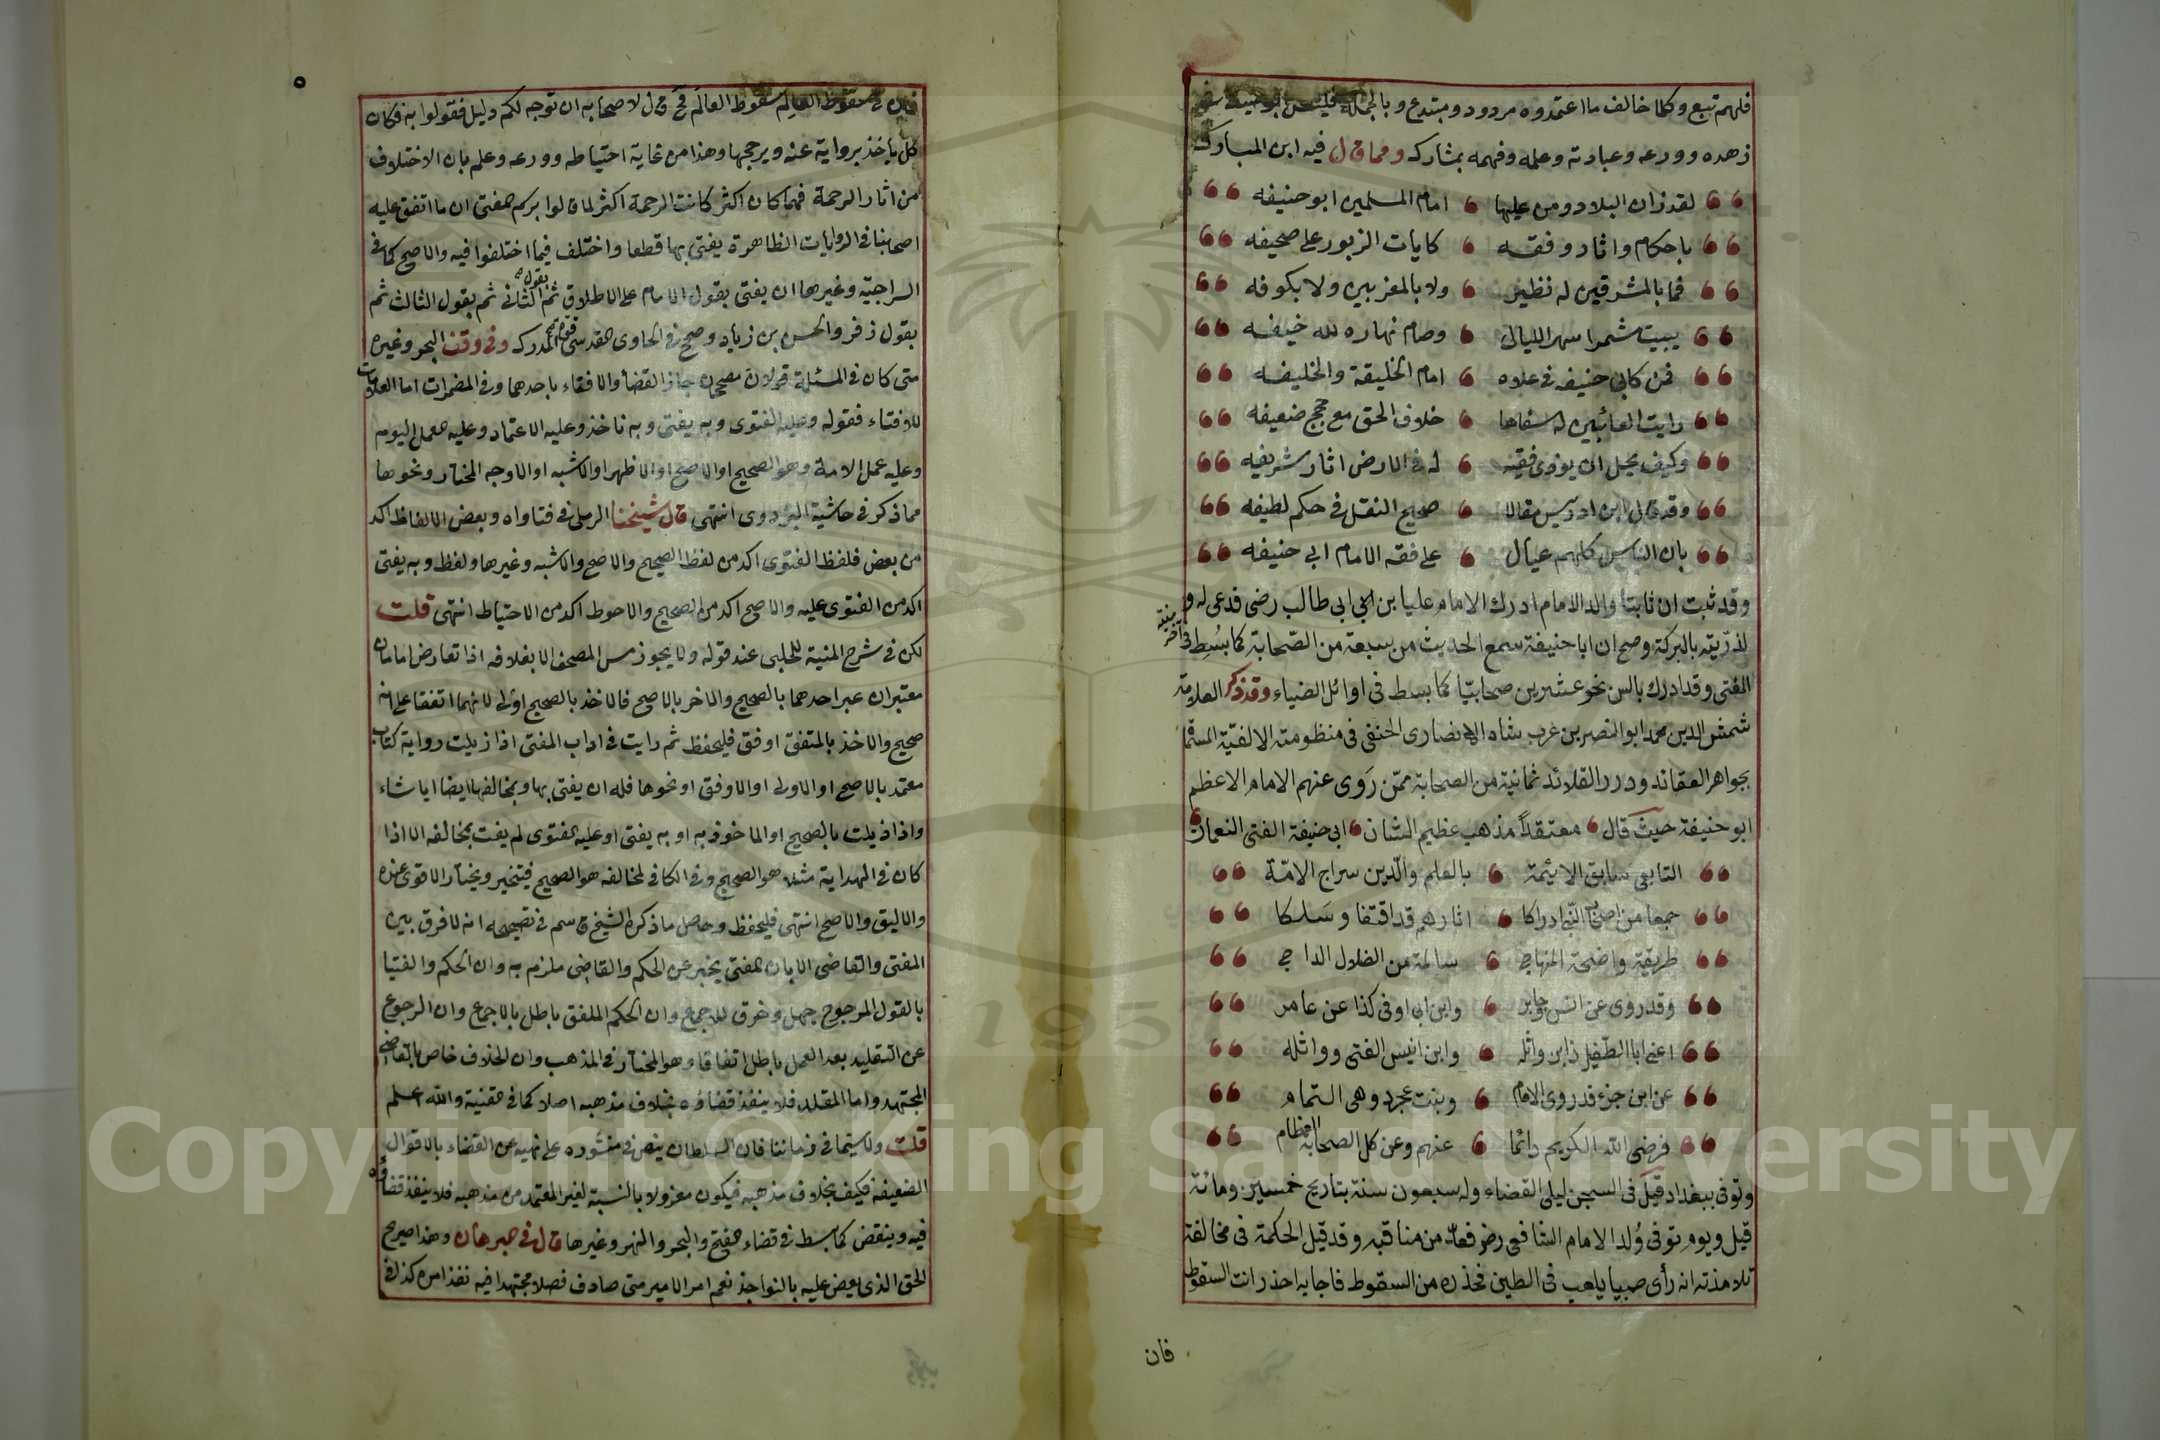 فلهم تبع وكلما خالف ما اعتمدوه مردود ومبتدع وبالجملة فليس لابي حنيفة في
زهده وورعه وعبادته وعلمه وفهمه بمشارك ومما قال فيه ابن المبارك
لقد زان البلاد ومن عليها امام المسلمين ابو حنيفه
باحكام واثار وفقه كايات الزبور على صحيفه
فما بالمشرقين له نظير ولا بالمغربين ولا بكوفه
يبيت مشمرا سهر الليالي وصام نهاره لله خيفه
فمن كابي حنيفه في علاه امام الخليقة والخليفه
رايت العائبين له سفاها خلاف الحق مع حجج ضعيفه
وكيف يحل ان يوذى فقيه له في الارض اثار شريفه
وقد قال ابن ادريس مقالا صحيح النقل في حكم لطيفه
بان الناس كلهم عيال على فقه الامام ابي حنيفه
وقد ثبت ان ثابتا والد الامام ادرك الامام عليا بن ابي طالب رضي فدعى له و
لذرّيّته بالبركة وصح ان ابا حنيفة سمع الحديث من سبعة من الصّحابة كما بُسِط في آخر منية
المفتى وقد ادرك بالسن نحو عشرين صحابيّا كما بسط في اوائل الضياء وقد ذكر العلامة
شمس الدين محمد ابو النصر بن عرب شاه الانصارى الحنفى فى منظومته الالفيّة المسماة
بجواهر العقائد ودرر القلائد ثمانية من الصحابة ممّن رَوى عنهم الامام الاعظم
ابو حنيفة حيث قال معتقداً مذهب عظيم الشان ابى حنيفة الفتى النعمان
التابعى سابق الائيمّة بالعلم والّدين سراج الامّة
جمعا من اصحاب النّبى ادركا اثارهم قد اقتفا وسَلكا
طريقة واضحة المنهاج سالمة من الضلال الداجي
وقد روى عن انس وجابر وابن ابى اوفى كذا عن عامر
اعنى ابا الطّفيل ذا ابن واثله وابن انيس الفتى وواثله
عن ابن جزء قد روى الامام وبنت عجرد وهى التمام
فرضى الله الكريم دائما عنهم وعن كل الصحابة العظام
وتوفى ببغداد قيل فى السجن ليلى القضاء وله سبعون سنة بتاريخ خمسين ومائة
قيل ويوم توفى وُلد الامام الشافعى رضي فعدّ من مناقبه وقد قيل الحكمة فى مخالفة
تلامذته انه رأى صبيا يلعب فى الطين فحذره من السقوط فاجابه احذر انت السقوط
فان
٥
فان في سقوط العالِم سقوط العالَم فح قال لاصحابه ان توجه لكم دليل فقولوا به فكان
كل ياخذ برواية عنه ويرجحها وهذا من غاية احتياطه وورعه وعلم بان الاختلاف
من اثار الرحمة فمهما كان اكثر كانت الرحمة اكثر لما قالوا رسم المفتى ان ما اتفق عليه
اصحابنا في الروايات الظاهرة يفتى بها قطعا واختلف فيما اختلفوا فيه والاصح كما في
السراجيّه وغيرها ان يفتى بقول الامام على الاطلاق ثم بقول الثاني ثم بقول الثالث ثم
بقول زفر والحسن بن زياد وصحح في الحاوى القدسى قوة المدرك وفي وقف البحر وغيره
متى كان في المسئلة قولان مصححان جاز القضاء والافتاء باحدهما وفي المضمرات اما العلامات
للافتاء فقوله وعليه الفتوى وبه يفتى وبه ناخذ وعليه الاعتماد وعليه عمل اليوم
وعليه عمل الامة وهو الصحيح او الاصح او الاظهر او الاشبه او الاوجه المختار ونحوها
مما ذكر في حاشية البزدوى انتهى قال شيخنا الرملى في فتاواه وبعض الالفاظ اكد
من بعض فلفظ الفتوى اكد من لفظ الصحيح والاصح والاشبه وغيرها ولفظ وبه يفتى
اكد من الفتوى عليه والاصح اكد من الصحيح والاحوط اكد من الاحتياط انتهى قلت
لكن في شرح المنية للحلبى عند قوله ولا يجوز مس المصحف الا بغلافه اذا تعارض امامان
معتبران عبر احدهما بالصحيح والاخر بالاصح فالاخذ بالصحيح اولى لانهما اتفقا على انه
صحيح والاخذ بالمتفق اوفق فليحفظ ثم رايت في اداب المفتى اذا ذيلت رواية كتاب
معتمد بالاصح او الاولى او الاوفق او نحوها فله ان يفتى بها وبمخالفها ايضا ايا شاء
واذا ذيلت بالصحيح او الماخوذ به او به يفتى او عليه الفتوى لم يفت بمخالفه الا اذا
كان في الهداية مثلا هو الصحيح وفي الكافي لمخالفه هو الصحيح فيتخير ويختار الاقوى عنده
والاليق والاصلح انتهى فليحفظ وحاصل ما ذكره الشيخ قاسم في تصحيحه انه لا فرق بين
المفتى والقاضى الا ان المفتى يخبر عن الحكم والقاضى ملزم به وان الحكم والفتيا
بالقول المرجوح جهل وخرق للاجماع وان الحكم الملفق باطل بالاجماع وان الرجوع
عن التقليد بعد العمل باطل اتفاقا وهو المختار في المذهب وان الخلاف خاص بالقاضى
المجتهد واما المقلد فلا ينفذ قضاؤه بخلاف مذهبه اصلا كما في القنية والله اعلم
قلت ولا سيّما في زماننا فان السلطان ينص في منشوره على نهيه عن القضاء بالاقوال
الضعيفة فكيف بخلاف مذهبه فيكون معزولا بالنسبة لغير المعتمد من مذهبه فلا ينفذ قضاؤه
فيه وينقض كما بسط في قضاء الفتح والبحر والنهر وغيرها قال في البرهان وهذا صريح
الحق الذى يعض عليه بالنواجذ نعم امر الامير متى صادف فصلا مجتهدا فيه نفذ امره كذا في
Copyright © King Saud University
1957